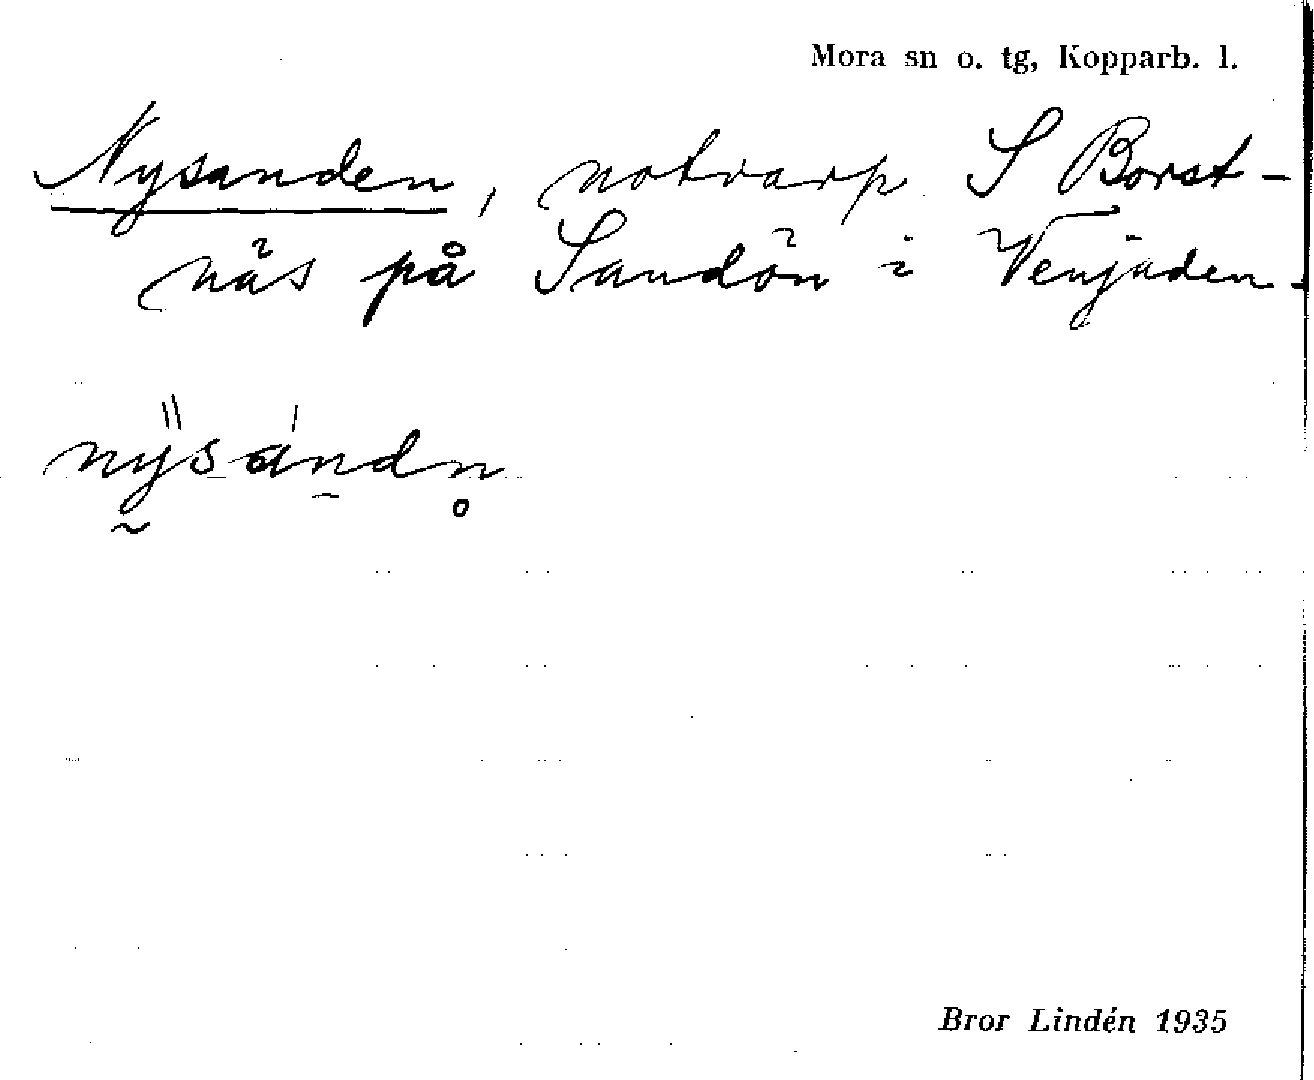 Mora sn o. tg, Kopparb. l.
Nysanden, notvarp S Borst-
näs på Sandön i Venjaden.
nysandn
Bror Lindén 1935